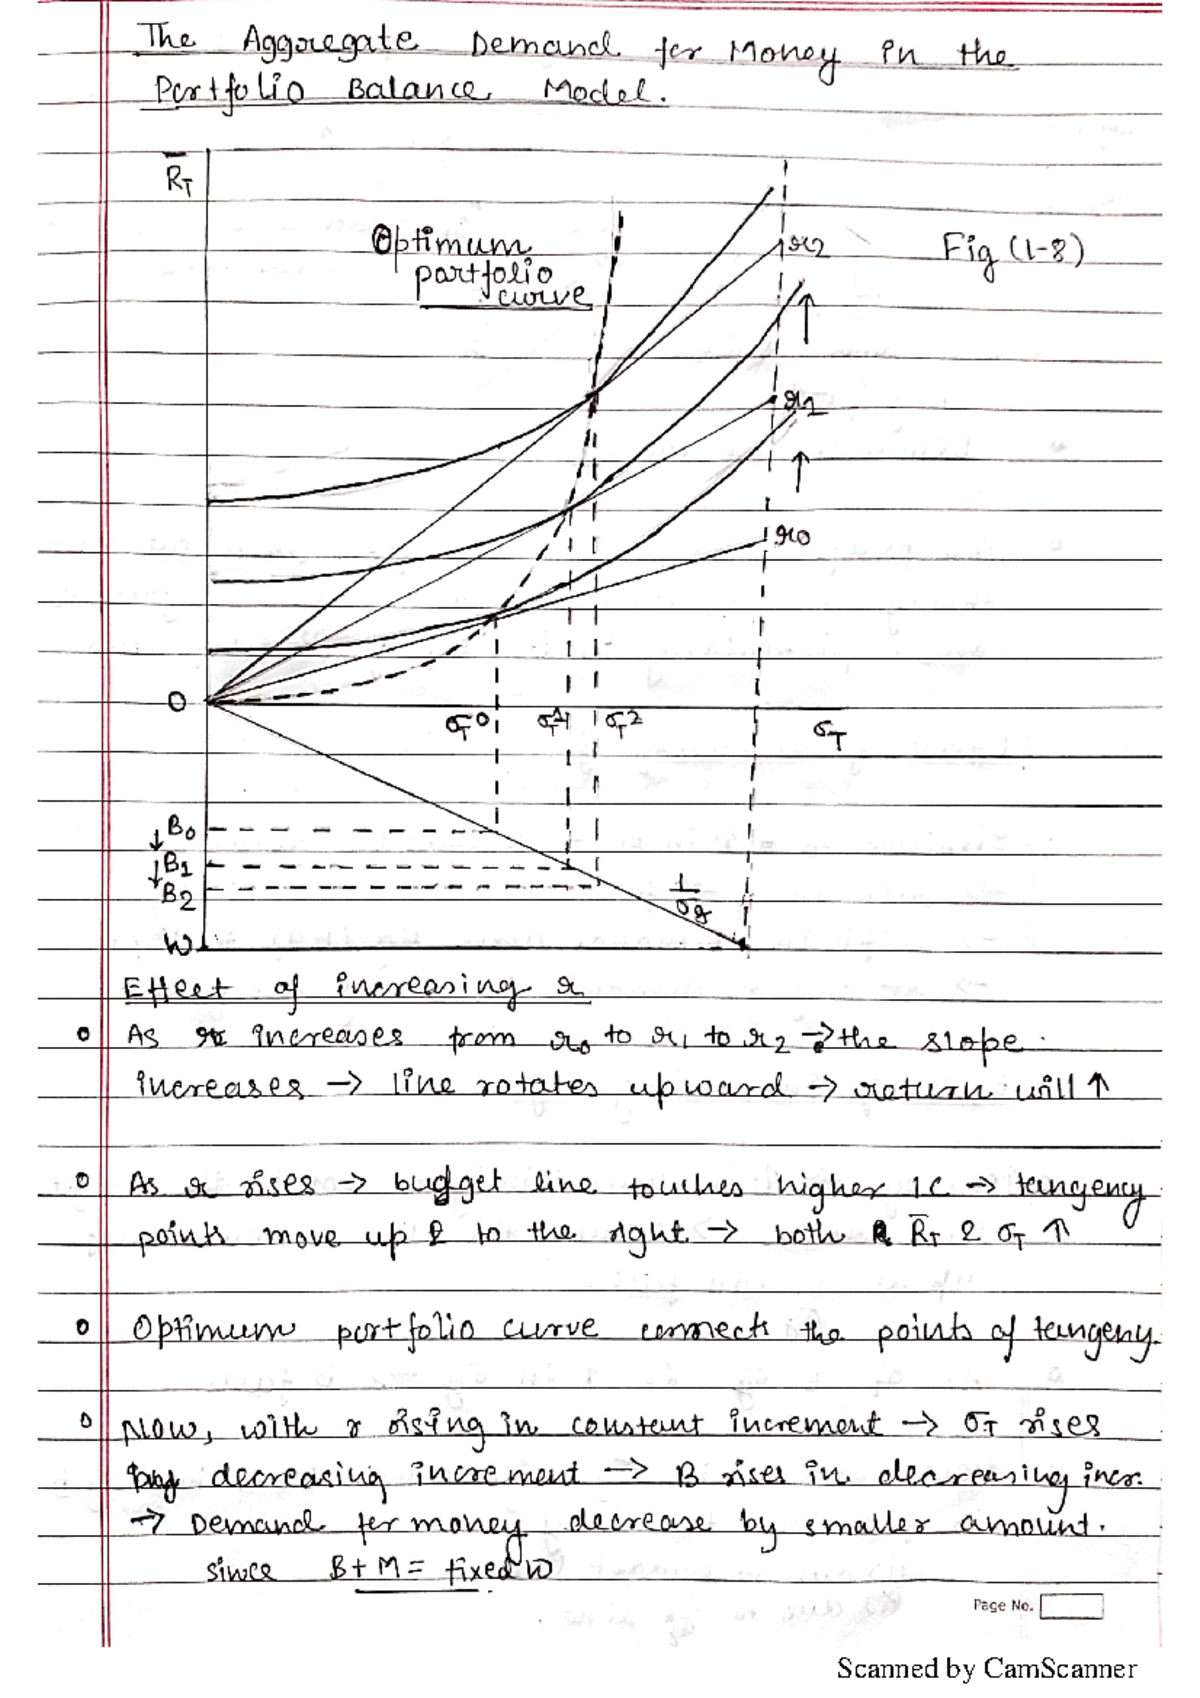 The Aggregate Demand for Money in the
Portfolio Balance Model.
R̅T
Optimum
portfolio
curve
r2
Fig (1-8)
r1
r0
O
σT0
σT1
σT2
σT
↓B0
↓B1
B2
1/σg
W
Effect of increasing r
o As r increases from r0 to r1 to r2 → the slope
increases → line rotates upward → return will ↑
o As r rises → budget line touches higher IC → tangency
points move up & to the right → both R̅T & σT ↑
o Optimum portfolio curve connects the points of tangeny.
o Now, with r rising in constant increment → σT rises
by decreasing increment → B rises in decreasing incr.
→ Demand for money decrease by smaller amount.
since B+M = fixed W
Page No.
Scanned by CamScanner